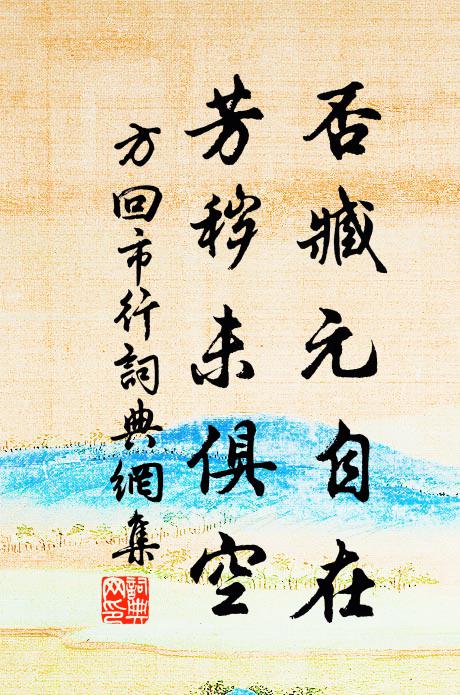 否臧元自在
芳秽未俱空
方回市行詞典網集
詞典网印